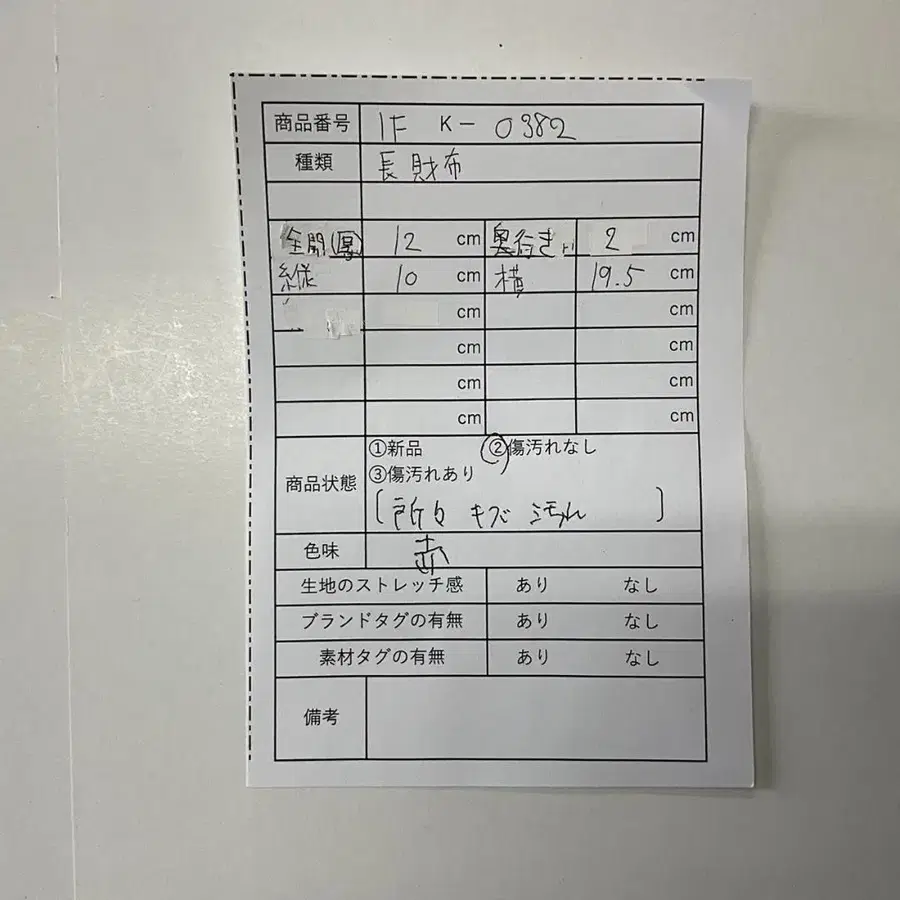 商品番号 1F K-0382
種類 長財布
全開(厚) 12 cm 奥行き 2 cm
縦 10 cm 横 19.5 cm
cm cm
cm cm
cm cm
cm cm
①新品 ②傷汚れなし
商品状態 ③傷汚れあり
[所々 キズ 汚れ ]
色味 赤
生地のストレッチ感 あり なし
ブランドタグの有無 あり なし
素材タグの有無 あり なし
備考